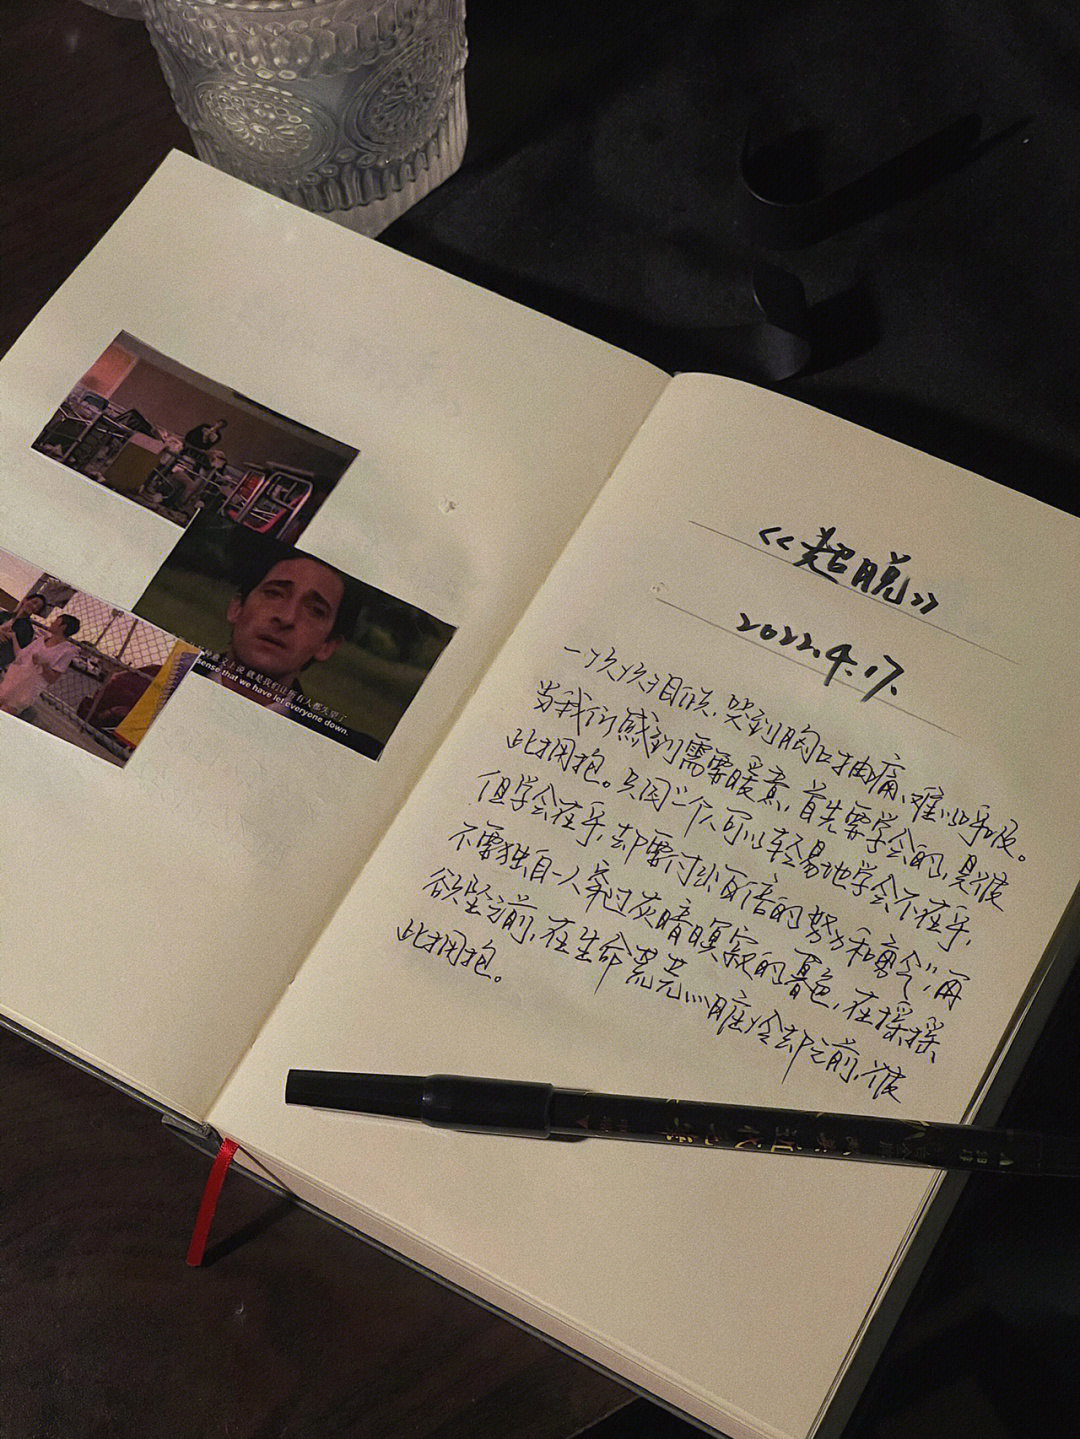 在某种意义上说 就是我们让所有人都失望了
sense that we have let everyone down.
《超脱》
2022.4.17.
一次次泪候，哭到胸口抽痛、难以呼吸。
当我们感到需要暖意，首先要学会的，是彼
此拥抱。只因一个人可以轻易地学会不在乎，
但学会在乎，却要付出百倍的努力和勇气，再
不要独自一人穿过灰暗冥寂的暮色，在摇摇
欲坠之前，在生命荒芜心脏冷却之前，彼
此拥抱。